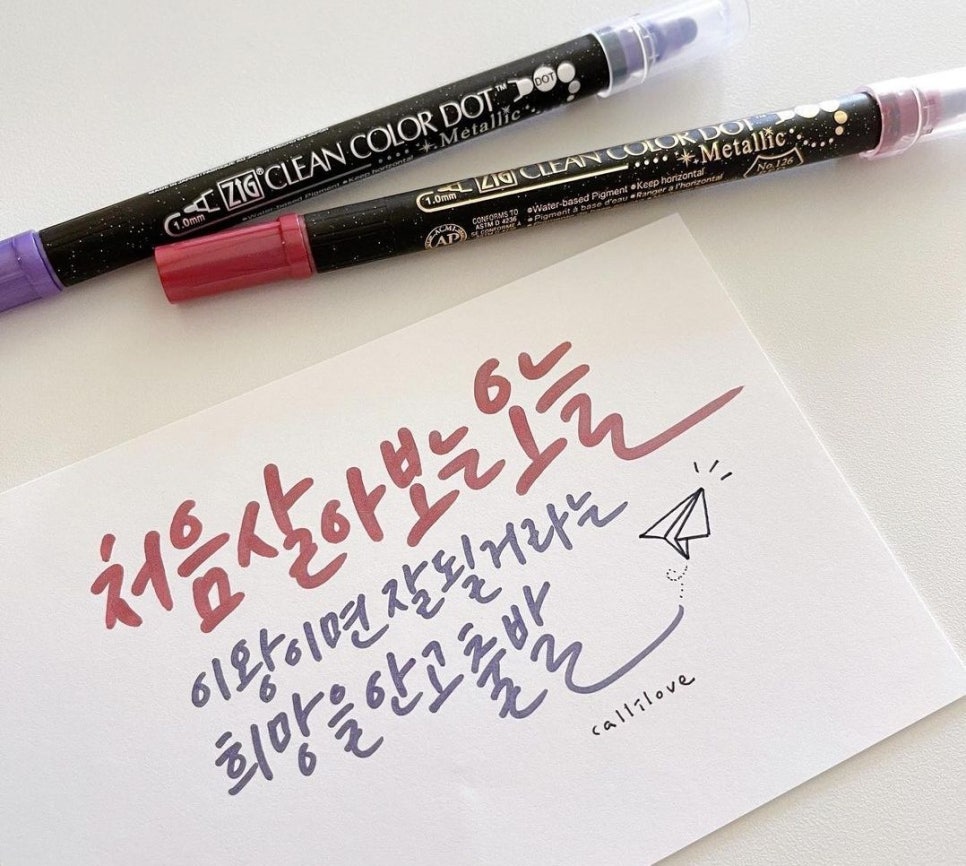 1.0mm ZIG® CLEAN COLOR DOT™ DOT
Metallic
•Water-based Pigment •Keep horizontal
1.0mm ZIG® CLEAN COLOR DOT
Metallic
No.126
ACMI AP CONFORMS TO ASTM D 4236
•Water-based Pigment •Keep horizontal
•Pigment à base d'eau •Ranger à l'horizontal
처음 살아보는 오늘
이왕이면 잘될거라는
희망을 안고 출발
callilove